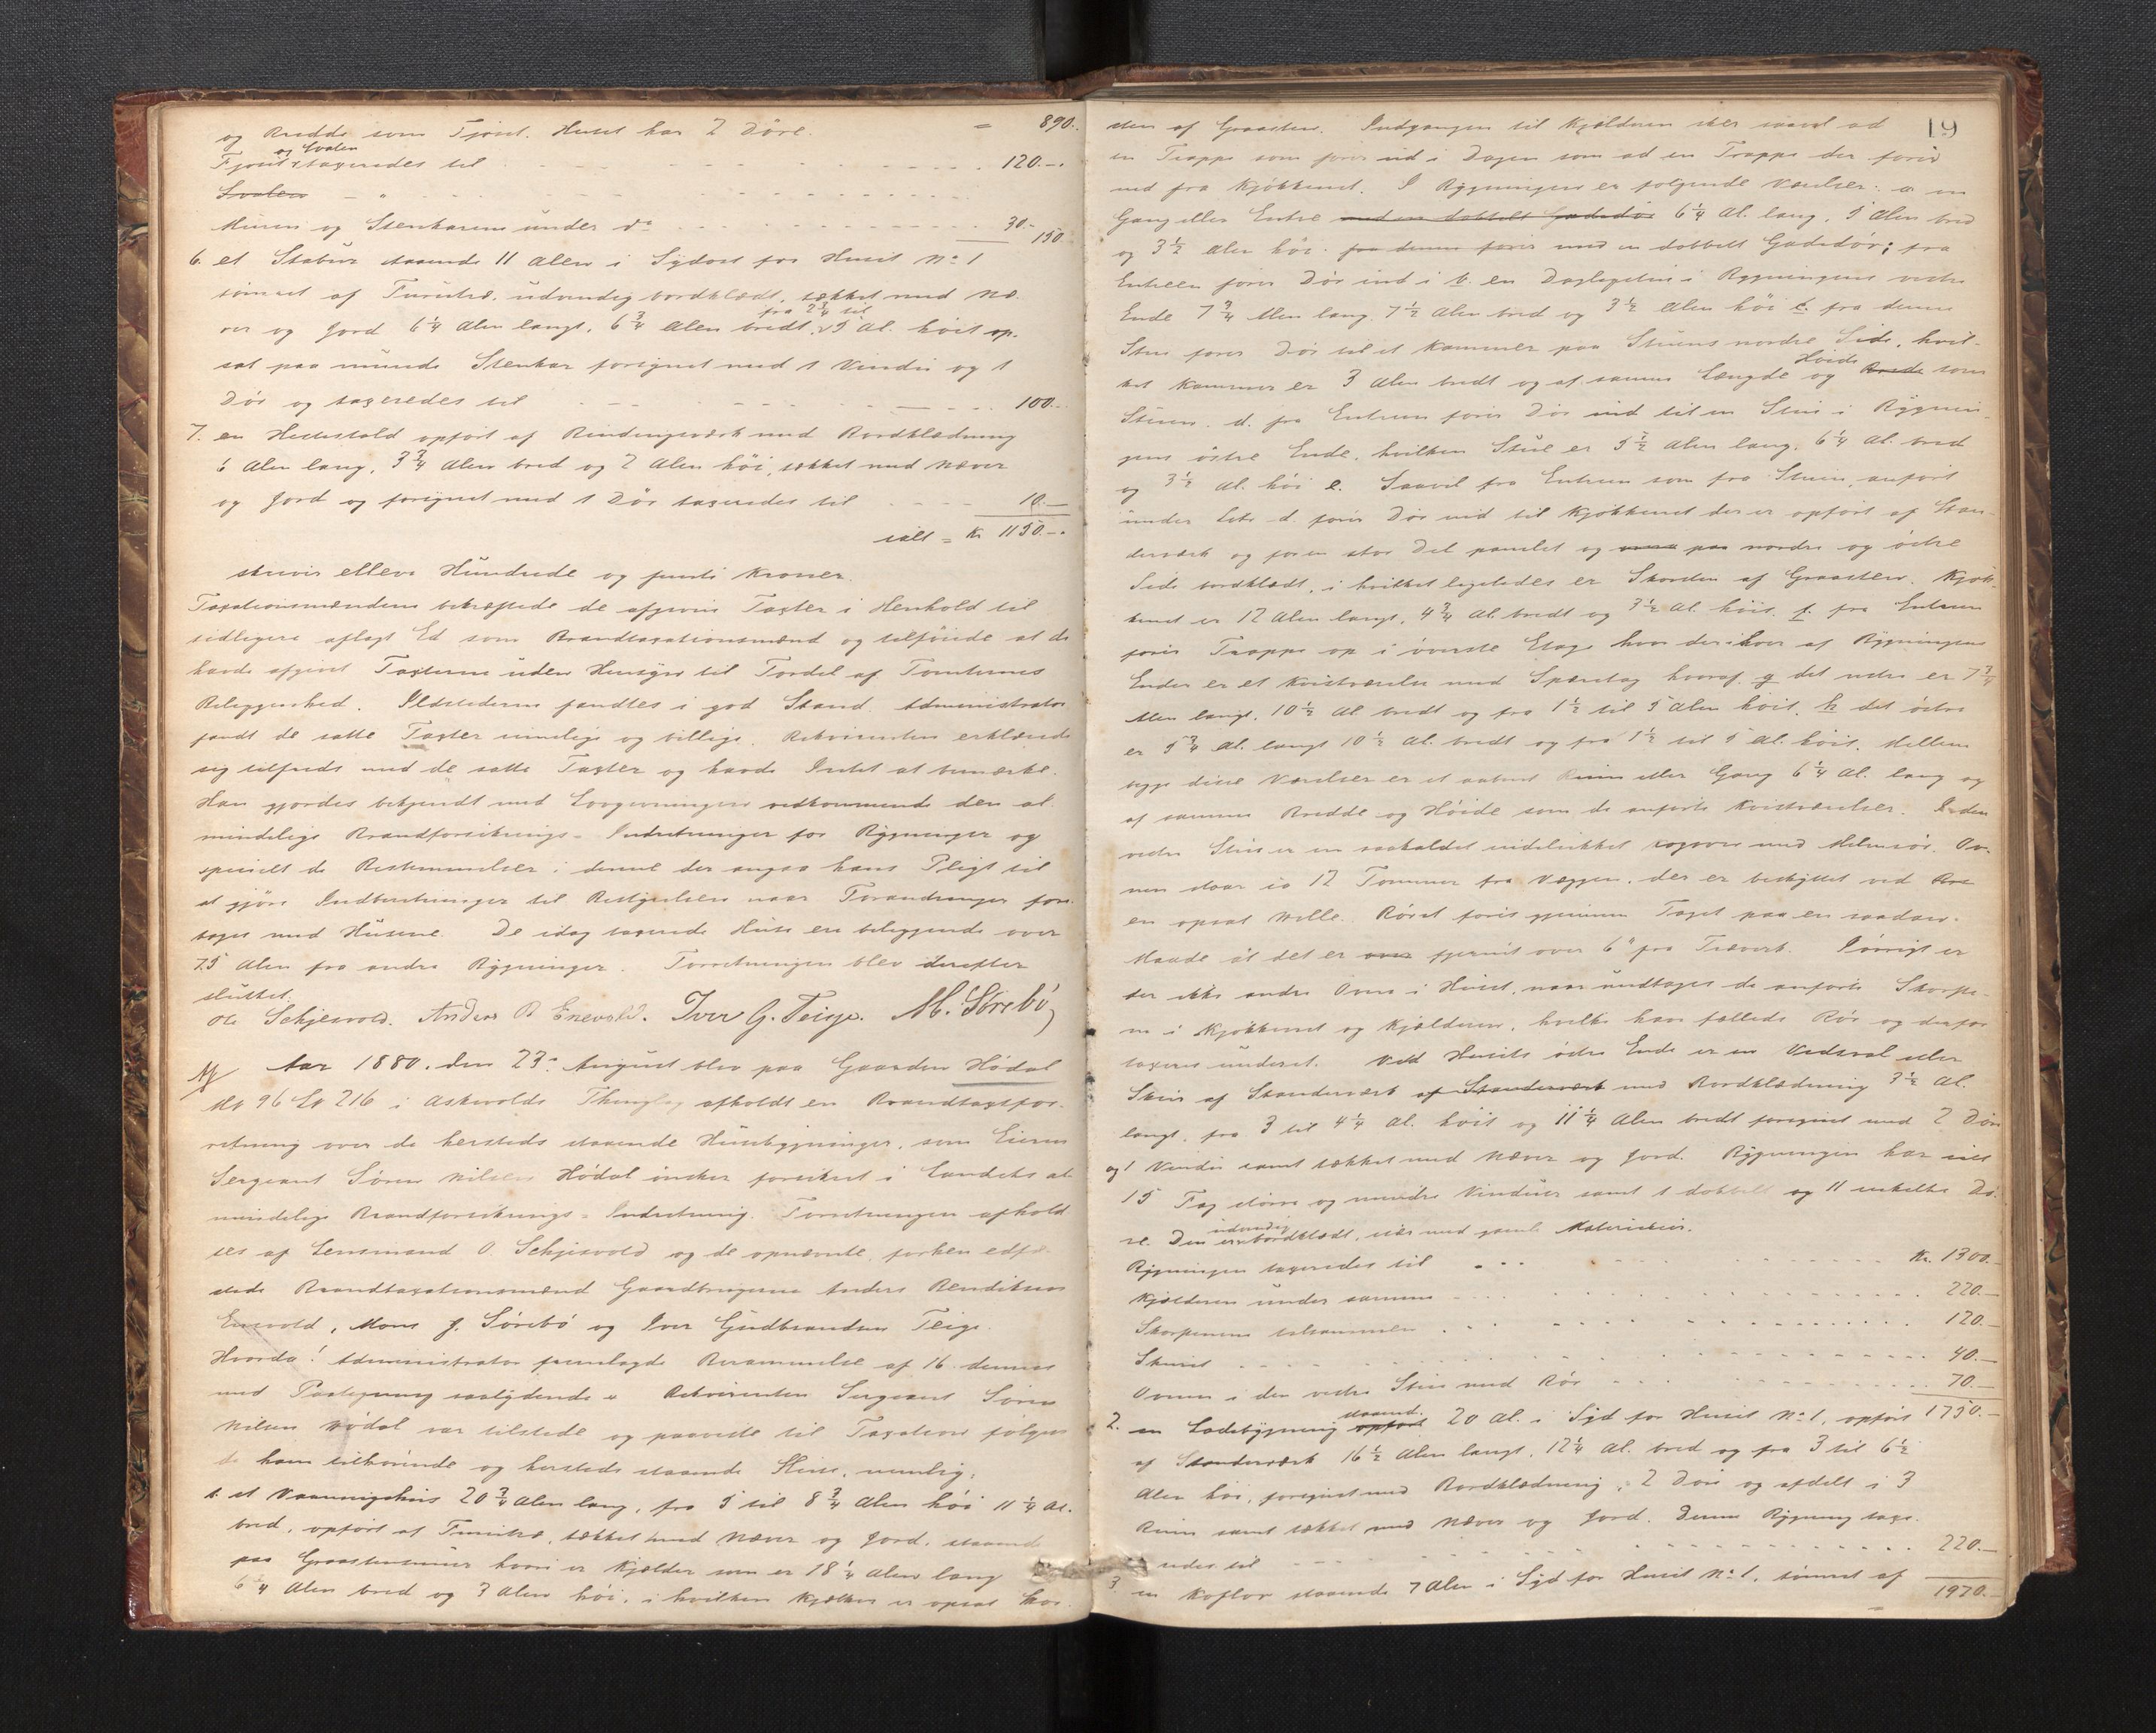 og Bredde som Fjøset. Huset har 2 Døre. = 890.
og Svalen
Fjøset taxeredes til 120.-
Svalen - "
Muren og Stenkarene under do 30.- 150
6. et Stabur staaende 11 Alen i Sydost for Huset No 1
tømret af Furutræ, udvendig bordklædt, tækket med Næ-
fra 2 3/4 til
ver og Jord 6 1/4 Alen langt, 6 3/4 Alen bredt, 5 Al. høit op-
sat paa murede Stenkar forsynet med 1 Vindu og 1
Dør og taxeredes til 100.-
7. en Hestestald opført af Bindingsværk med Bordklædning
6 Alen lang, 3 3/4 Alen bred og 2 Alen høi, tækket med Næver
og Jord og forsynet med 1 Dør taxeredes til 10.-
ialt = Kr 1150.-
skriver elleve Hundrede og femti Kroner.
Taxationsmændene bekræftede de afgivne Taxter i Henhold til
tidligere aflagt Ed som Brandtaxationsmænd og tilføiede at de
havde afgivet Taxterne uden Hensyn til Fordel af Tomternes
Beliggenhed. Ildstederne fandtes i god Stand. Administrator
fandt de satte Taxter rimelige og billige. Rekvirenten erklærede
sig tilfreds med de satte Taxter og havde Intet at bemærke.
Han gjordes bekjendt med Lovgivningen vedkommende den al-
mindelige Brandforsikrings-Indretninger for Bygninger og
specielt de Bestemmelser i denne der angaa hans Pligt til
at gjøre Indberetninger til Bestyrelsen naar Forandringer fore-
tages med Husene. De idag taxerede Huse ere beliggende over
75 Alen fra andre Bygninger. Forretningen blev derefter
sluttet.
Ole Schjesvold. Anders B Enevold. Iver G. Teige. M. Sørebø
Aar 1880. den 23de August blev paa Gaarden Hødal
M No 96 Lo 216 i Askevolds Thinglag afholdt en Brandtaxtfor-
retning over de hersteds staaende Husebygninger, som Eieren
Sergeant Søren Nilsen Hødal ønsker forsikret i Landets al-
mindelige Brandforsikrings-Indretning. Forretningen afhold-
tes af Lensmand O. Schjesvold og de opnævnte, forhen edfæ-
stede Brandtaxationsmænd Gaardbrugerne Anders Bendiksen
Enevold, Mons J. Sørebø og Iver Gudbrandsen Teige.
Hvorda! Administrator fremlagde Berammelse af 16 dennes
med Paategning saalydende. Rekvirenten Sergeant Søren
Nilsen Hødal var tilstede og paaviste til Taxation følgen-
de ham tilhørende og hersteds staaende Huse, nemlig:
1. et Vaaningshus 20 3/4 Alen lang, fra 5 til 8 3/4 Alen høi 11 1/4 Al.
bred, opført af Furutræ, tækket med Næver og Jord, staaende
paa Graastensmur hvori er Kjælder som er 18 1/4 Alen lang
6 1/4 Alen bred og 3 Alen høi, i hvilken Kjælder er opsat Skor-
19
sten af Graasten. Indgangen til Kjælderen sker saavel ad
en Trappe som fører ud i Dagen som ad en Trappe der fører
ned fra Kjøkkenet. I Bygningen er følgende Værelser: a en
Gang eller Entre med en dobbelt Gadedør 6 1/4 Al. lang, 5 Alen bred
og 3 1/2 Alen høi. fra denne fører med en dobbelt Gadedør; fra
Entreen fører Dør ind i b. en Daglegstue i Bygningens vestre
Ende 7 3/4 Alen lang 7 1/2 Alen bred og 3 1/2 Alen høi c. fra denne
Stue fører Dør til et Kammer paa Stuens nordre Side, hvil-
Høide
ket Kammer er 3 Alen bredt og af samme Længde og Brede som
Stuen. d. fra Entreen fører Dør ind til en Stue i Bygnin-
gens østre Ende, hvilken Stue er 5 1/2 Alen lang, 6 1/4 Al. bred
og 3 1/2 Al. høi e. Saavel fra Entreen som fra Stuen, anført
under Litr d. fører Dør ind til Kjøkkenet der er opført af Stan-
derværk og for en stor Del panelet og paa nordre og østre
Side bordklædt, i hvilket ligeledes er Skorsten af Graasten. Kjøk-
kenet er 12 Alen langt, 4 3/4 Al. bredt og 3 1/2 Al. høit. f. fra Entreen
fører Trappe op i øverste Etage hvor der i hver af Bygningens
Ender er et Kvistværelse med Sparetag hvoraf g det vestre er 7 3/4
Alen langt, 10 1/2 Al bredt og fra 1 1/2 til 5 Alen høit, h det østre
er 5 3/4 Al. langt 10 1/2 Al. bredt og fra 1 1/2 til 5 Al. høit. Mellem
begge disse Værelser er et aabent Rum eller Gang 6 1/4 Al. lang og
af samme Bredde og Høide som de anførte Kvistværelser. I den
vestre Stue er en saakaldet vidtrukket Kogeovn med Messrør. Ov-
nen staar ca 12 Tommer fra Væggen, der er beskyttet ved
en opsat Helle. Røret føres gjennem Taget paa en saadan
Maade at det er fjernet over 6" fra Træverk. Iøvrigt er
der ikke andre Ovne i Huset, naar undtages de anførte Skorste-
ne i Kjøkkenet og Kjælderen, hvilke have fælleds Rør og derfor
taxeres underet. Ved Husets østre Ende er en Vedsval eller
Skur af Standerværk af Standerværk med Bordklædning 3 1/2 Al.
langt, fra 3 til 4 1/4 Al. høit og 11 1/4 Alen bredt forsynet med 2 Døre
og 1 Vindu samt tækket med Næver og Jord. Bygningen har ialt
15 Fag større og mindre Vinduer samt 1 dobbelt og 11 enkelte Dø-
udvendig
re. Den er bordklædt, især med gamle Materialier.
Bygningen taxeredes til Kr. 1300.-
Kjælderen under samme 220.-
Skorstenene tilsammen 120.-
Skuret 40.-
Ovnen i den vestre Stue med Rør 70.-
1750.-
staaende
2. en Ladebygning opført 20 Al. i Syd for Huset No 1, opført
af Standerværk 16 1/2 Alen langt, 12 1/4 Al. bred og fra 3 til 6 1/2
Alen høi, forsynet med Bordklædning, 2 Døre og afdelt i 3
Rum samt tækket med Næver og Jord. Denne Bygning taxe-
redes til 220.-
3. en Koflor staaende 7 Alen i Syd for Huset No 1, tømret af
= 1970.-